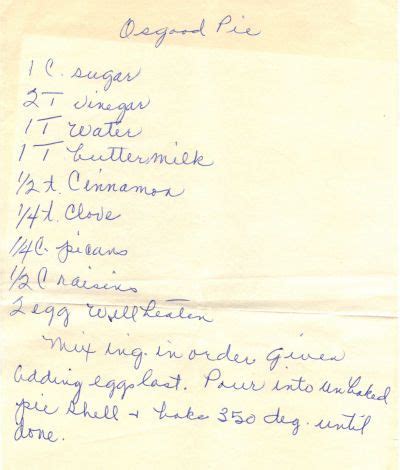 Osgood Pie
1 C. sugar
2 T vinegar
1 T water
1 T buttermilk
1/2 t. Cinnamon
1/4 t. Clove
1/4 C. picans
1/2 C raisins
2 egg well beaten
Mix ing. in order given
adding eggs last. Pour into unbaked
pie shell + bake 350 deg. until
done.